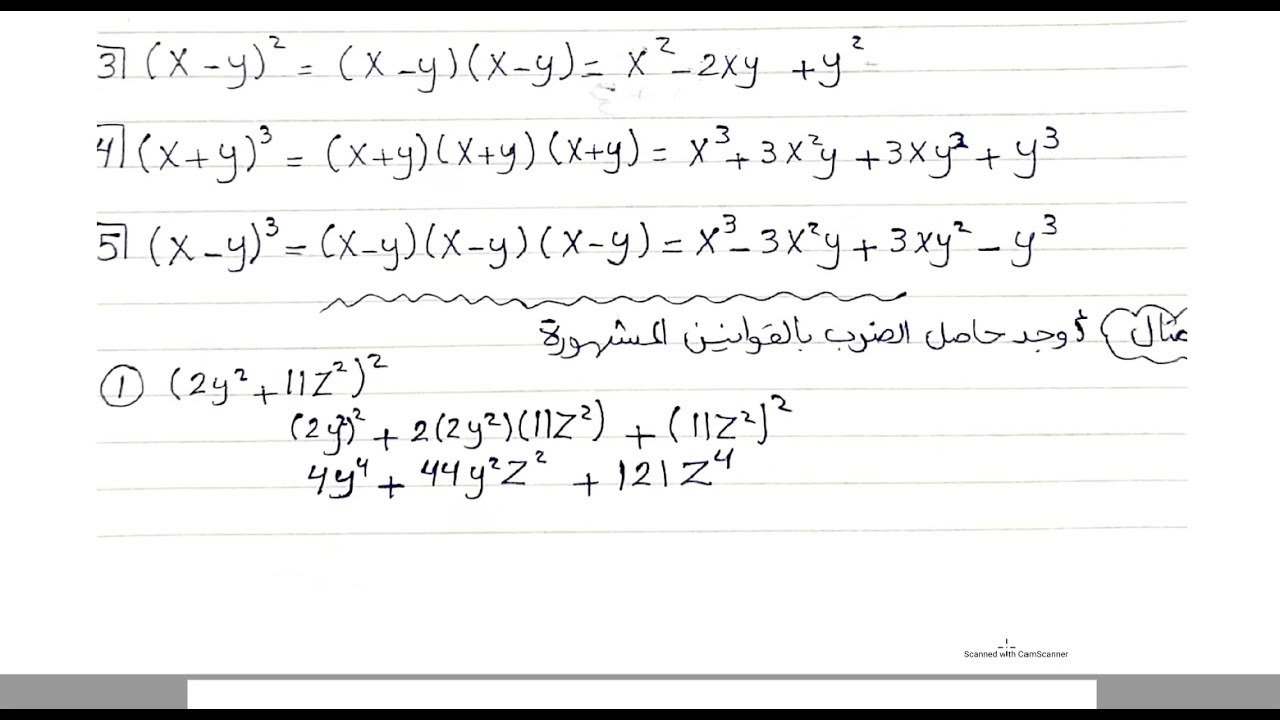 3] (x-y)² = (x-y)(x-y) = x² - 2xy + y²
4] (x+y)³ = (x+y)(x+y)(x+y) = x³ + 3x²y + 3xy² + y³
5] (x-y)³ = (x-y)(x-y)(x-y) = x³ - 3x²y + 3xy² - y³
مثال أوجد حاصل الضرب بالقوانين المشهورة
① (2y² + 11z²)²
(2y²)² + 2(2y²)(11z²) + (11z²)²
4y⁴ + 44y²z² + 121z⁴
Scanned with CamScanner